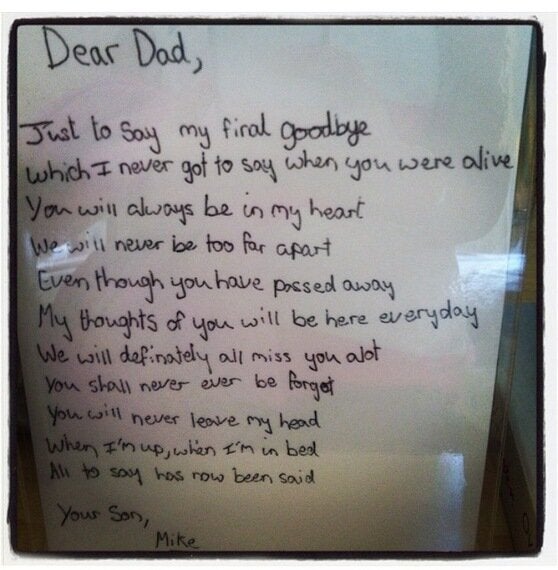 Dear Dad,
Just to say my final goodbye
which I never got to say when you were alive
You will always be in my heart
We will never be too far apart
Even though you have passed away
My thoughts of you will be here everyday
We will definately all miss you alot
You shall never ever be forgot
You will never leave my head
When I'm up, when I'm in bed
All to say has now been said
Your Son,
Mike